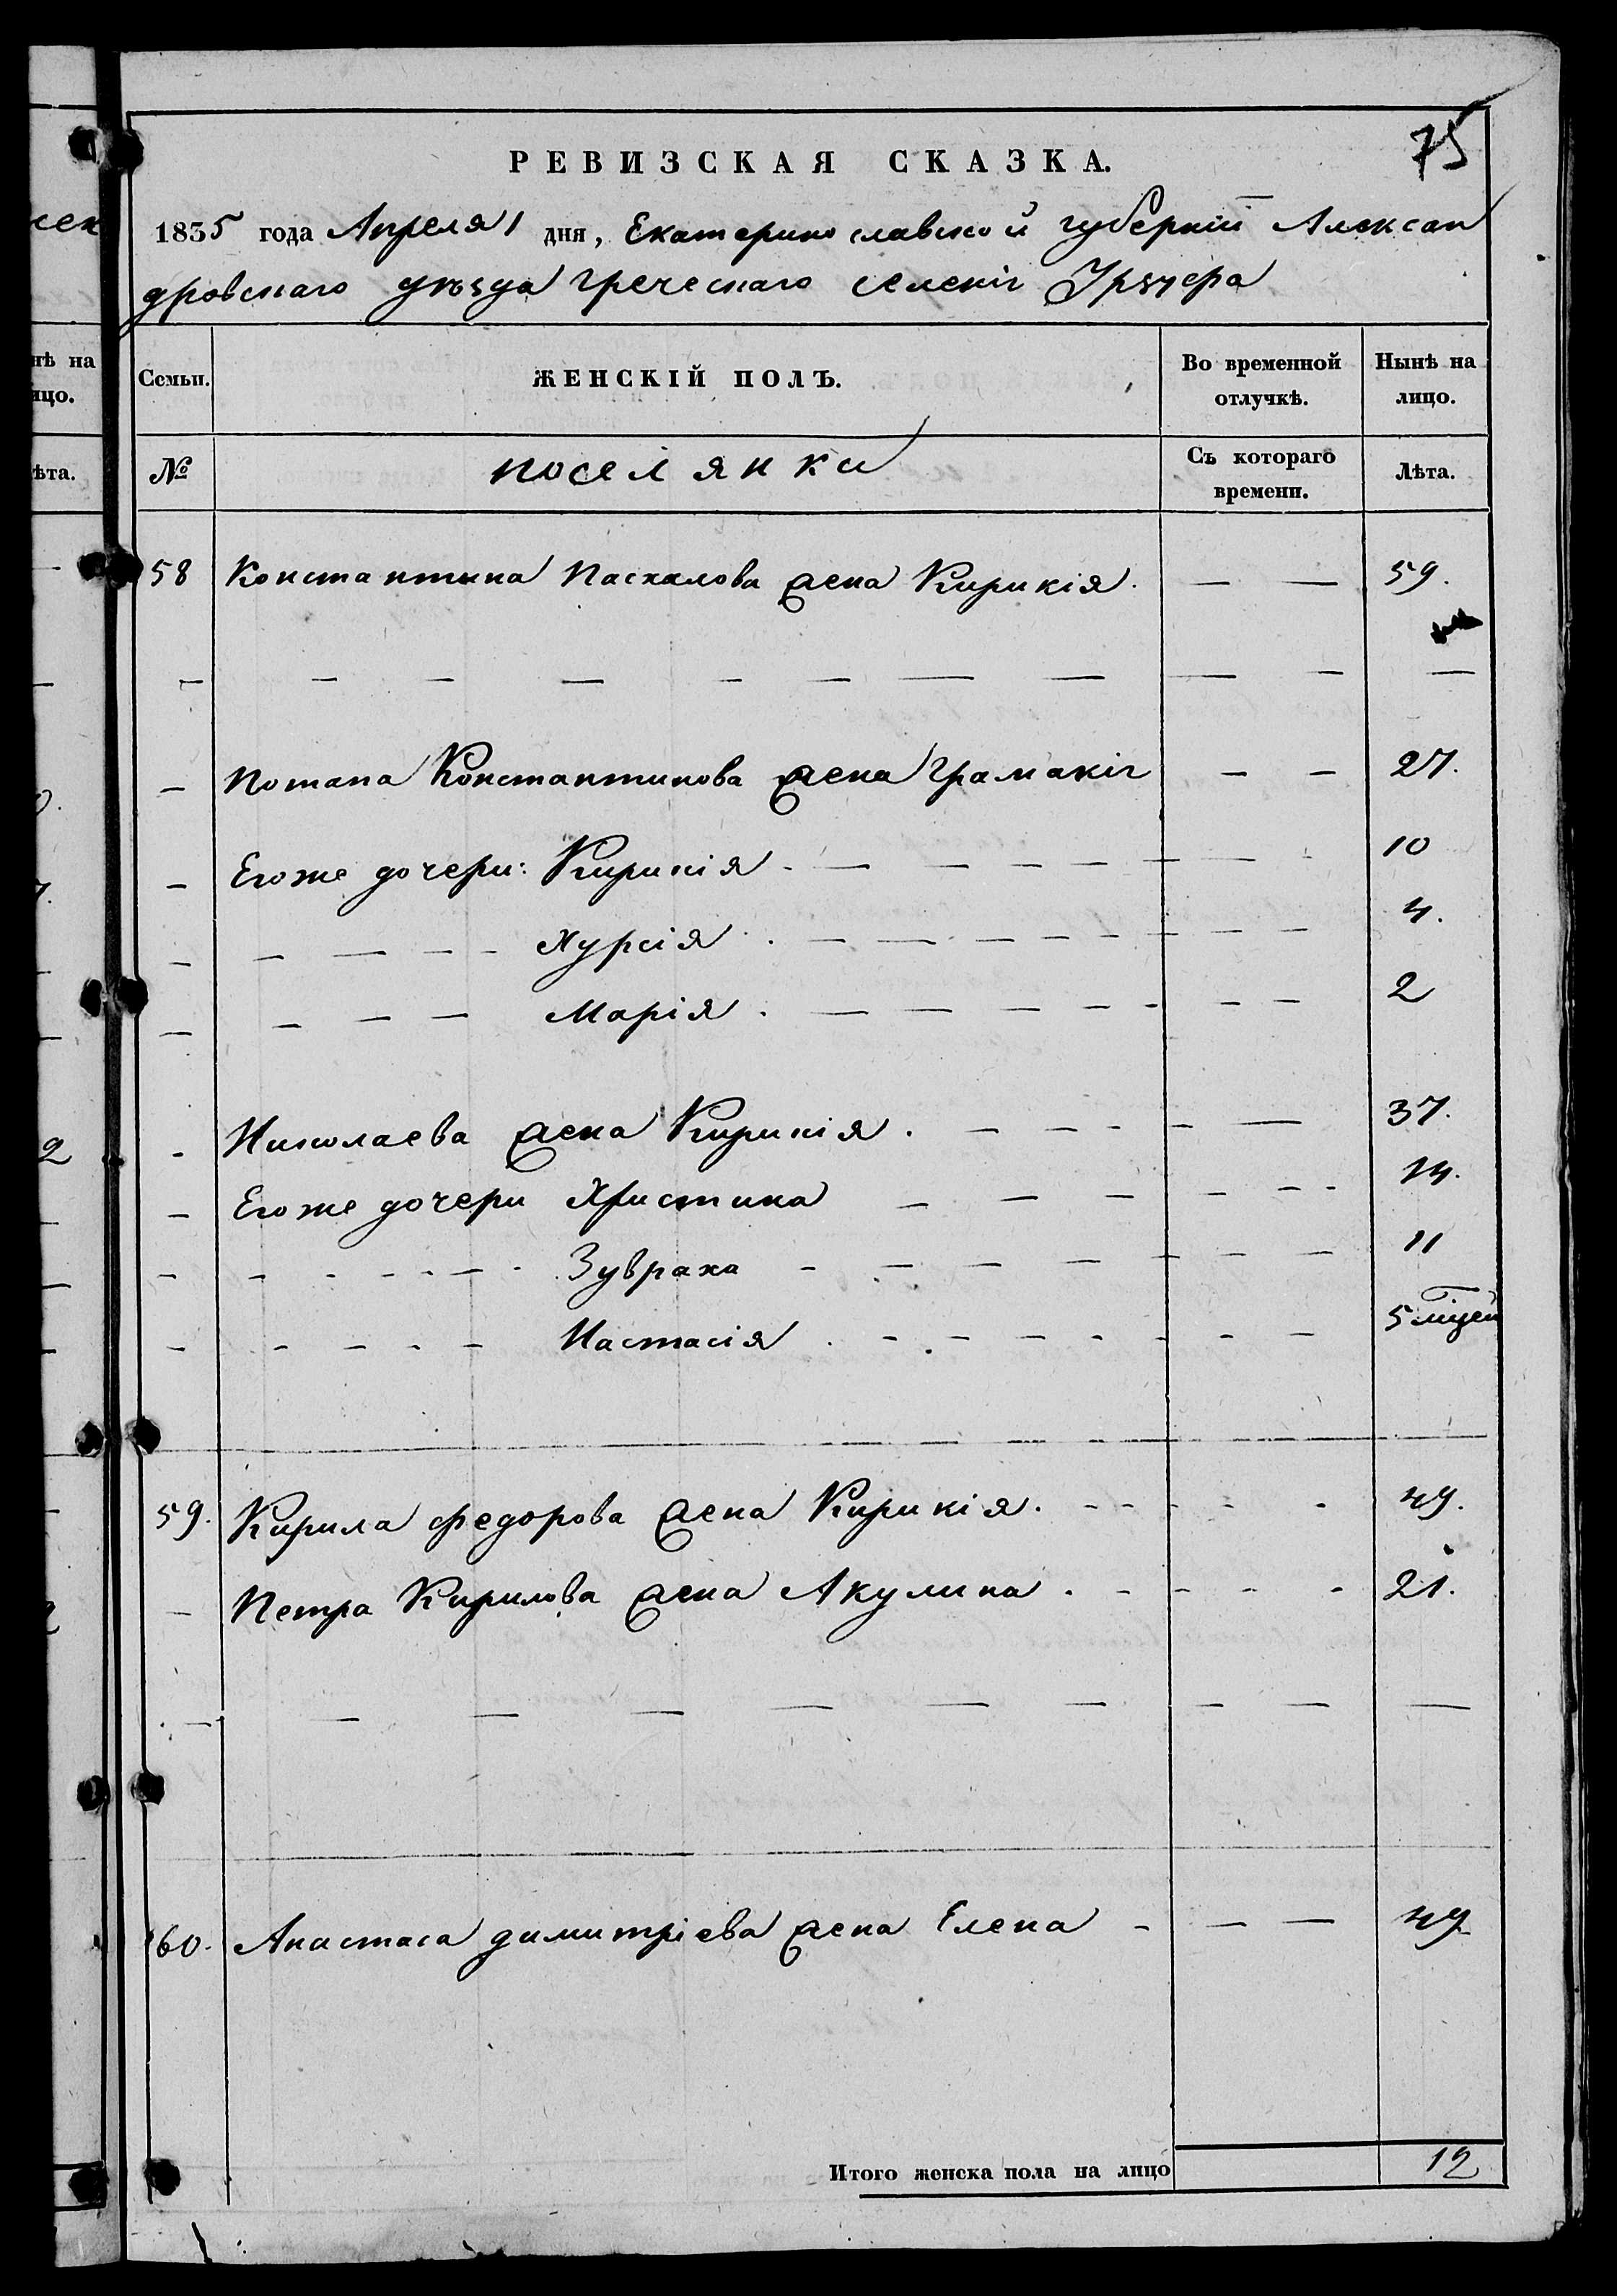 75
РЕВИЗСКАЯ СКАЗКА.
1835 года Апреля 1 дня, Екатеринославской губерніи Алексан
дровскаго уѣзда греческаго селенія Урзуфа
Семьи. ЖЕНСКІЙ ПОЛЪ. Во временной отлучкѣ. Нынѣ на лицо.
№ поселянки Съ котораго времени. Лѣта.
58 Константина Паскалова жена Кирикія. — — 59.
— Потапа Константинова жена Грамакія — — 27.
— Егоже дочери: Кирикія — — 10
— Хурсія — — 4.
— Марія — — 2
— Николаева жена Кирикія. — — 37.
— Егоже дочери Христина — — 14.
— Зуврака — — 11
— Настасія — — 5 мцей
59. Кирила Федорова жена Кирикія. — — 49.
— Петра Кирилова жена Акулина — — 21.
60. Анастаса Димитріева жена Елена — — 49
Итого женска пола на лицо 12